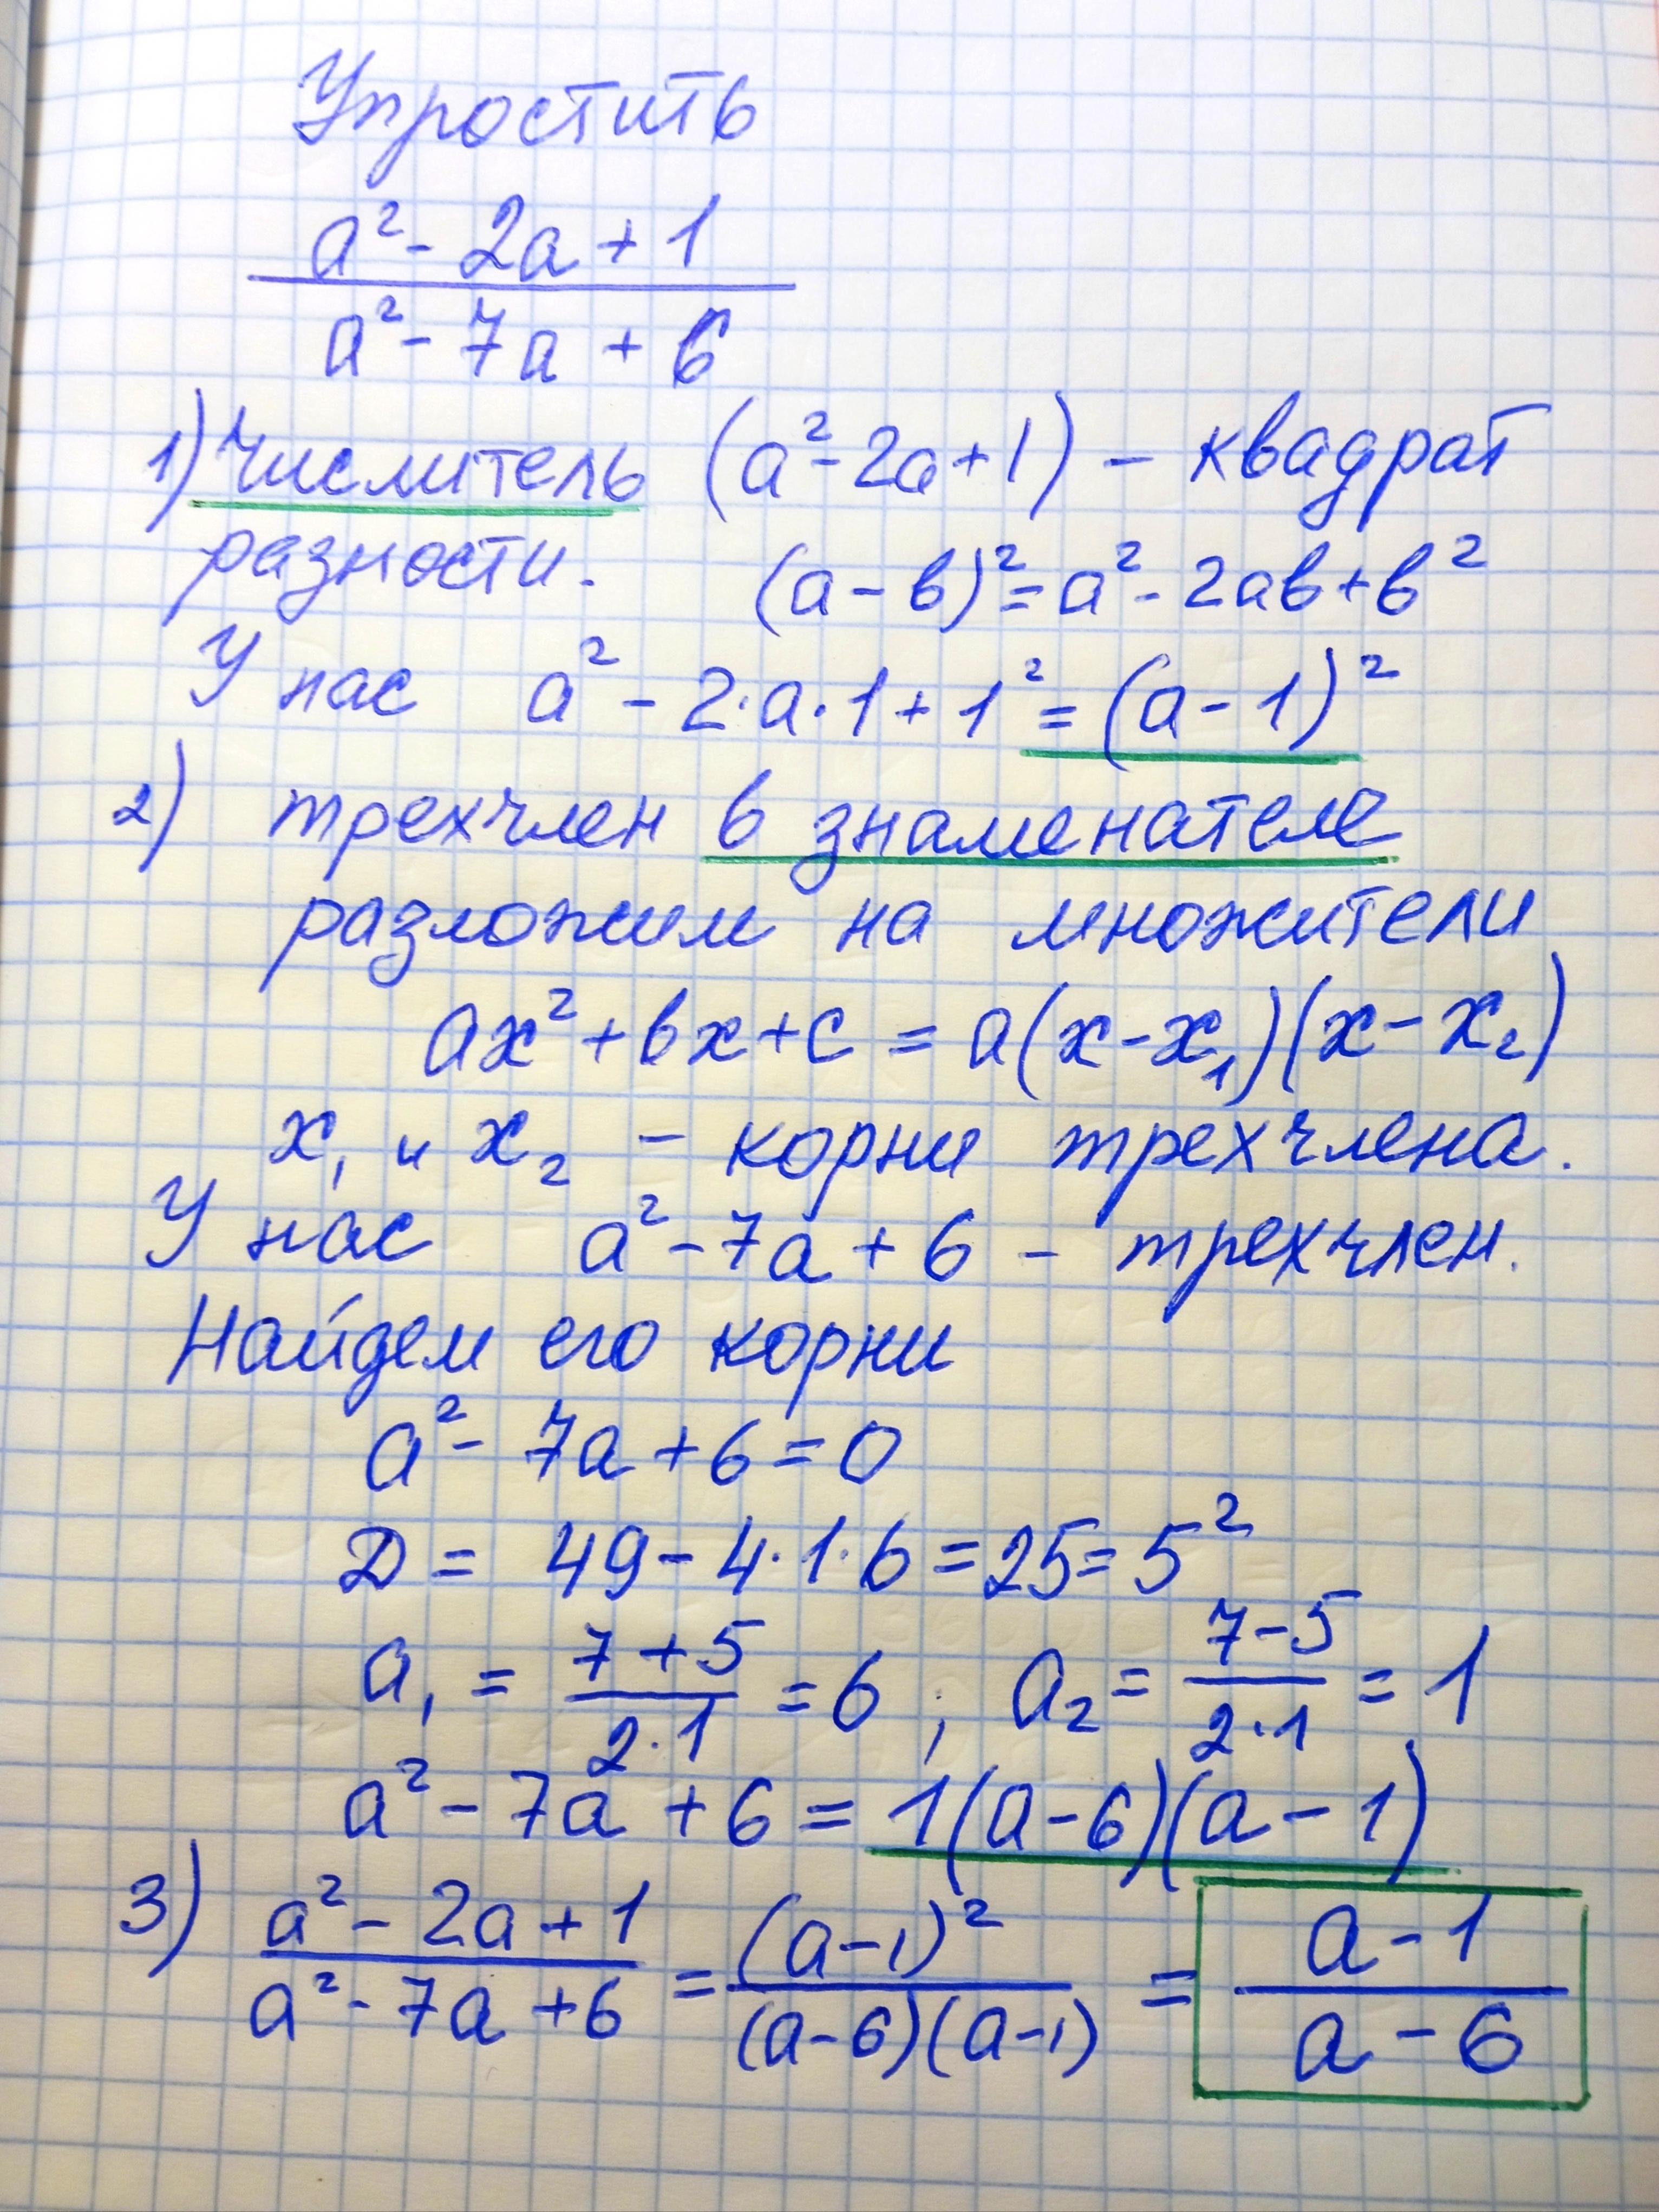 Упростить
a² - 2a + 1
a² - 7a + 6
1) Числитель (a² - 2a + 1) – квадрат
разности. (a - b)² = a² - 2ab + b²
У нас a² - 2·a·1 + 1² = (a - 1)²
2) трехчлен в знаменателе
разложим на множители
ax² + bx + c = a(x - x₁)(x - x₂)
x₁ и x₂ – корни трехчлена.
У нас a² - 7a + 6 – трехчлен.
Найдем его корни
a² - 7a + 6 = 0
D = 49 - 4·1·6 = 25 = 5²
a₁ = (7 + 5)/(2·1) = 6 ; a₂ = (7 - 5)/(2·1) = 1
a² - 7a + 6 = 1(a - 6)(a - 1)
3) (a² - 2a + 1)/(a² - 7a + 6) = (a - 1)²/((a - 6)(a - 1)) = (a - 1)/(a - 6)